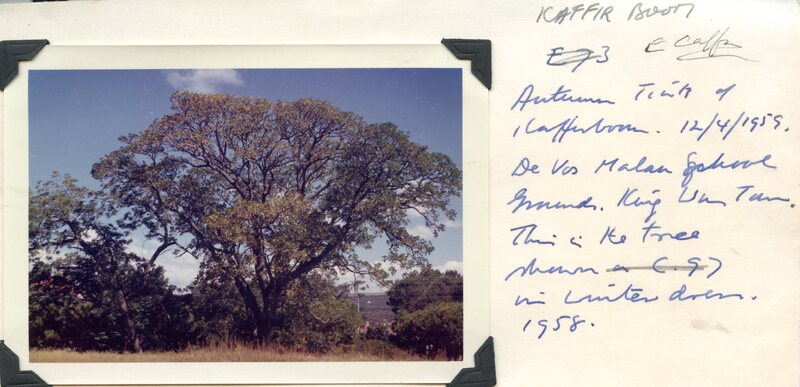 KAFFIR BOOM
E 73 E Caffra
Autumn Tints of
Kafferboom. 12/4/1959.
De Vos Malan School
Grounds. King Wm Town.
This is the tree
shown
in winter dress.
1958.